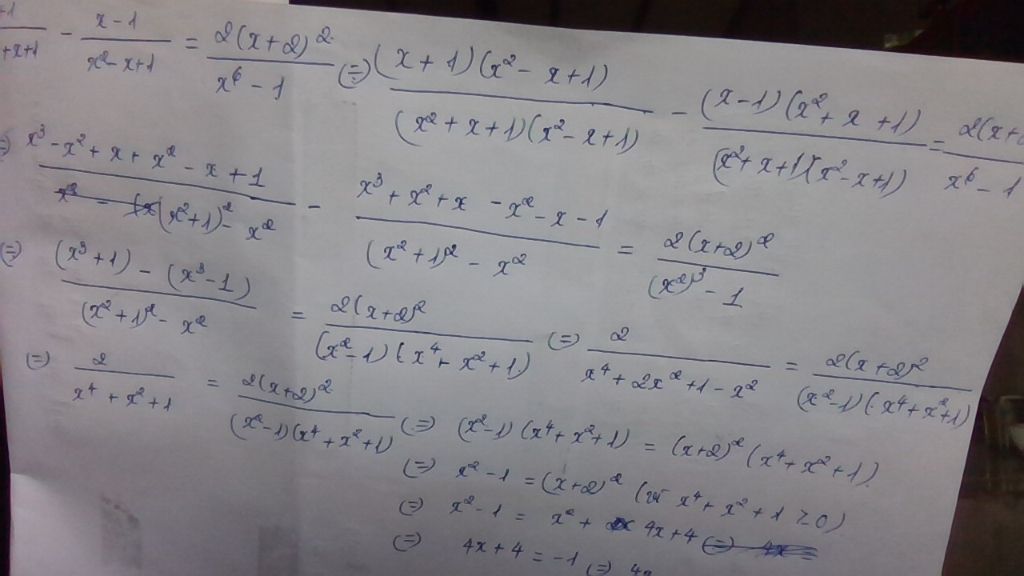 +1/+x+1 - x-1/x²-x+1 = 2(x+2)²/x⁶-1 (=) (x+1)(x²-x+1)/(x²+x+1)(x²-x+1) - (x-1)(x²+x+1)/(x²+x+1)(x²-x+1) = 2(x+/x⁶-1
=) x³-x²+x+x²-x+1/(x²+1)²-x² - x³+x²+x-x²-x-1/(x²+1)²-x² = 2(x+2)²/(x²)³-1
(=) (x³+1)-(x³-1)/(x²+1)²-x² = 2(x+2)²/(x²-1)(x⁴+x²+1) (=) 2/x⁴+2x²+1-x² = 2(x+2)²/(x²-1)(x⁴+x²+1)
(=) 2/x⁴+x²+1 = 2(x+2)²/(x²-1)(x⁴+x²+1) (=) (x²-1)(x⁴+x²+1) = (x+2)²(x⁴+x²+1)
(=) x²-1 = (x+2)² (vì x⁴+x²+1 ≥0)
(=) x²-1 = x²+4x+4
(=) 4x+4 = -1 (=) 4x